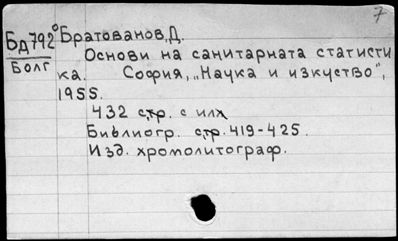 7
Бд792⁰ Братованов, Д.
Болг
Основи на санитарната статисти
ка. София, „Наука и изкуство",
1955.
432 стр. с илл
Библиогр. стр. 419-425.
Изд. хромолитограф.